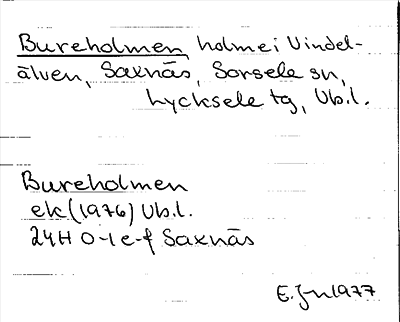 Bureholmen, holme i Vindel-
älven, Saxnäs, Sorsele sn,
Lycksele tg, Vb.l.
Bureholmen
ek (1976) Vb.l.
24H 0-1 e-f Saxnäs
E. Jn 1977